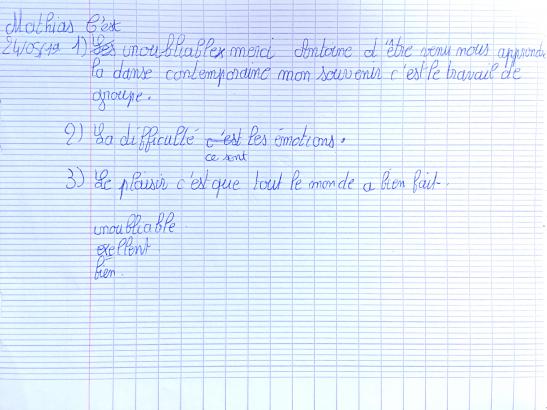 Mathias C'est
24/05/19 1) Les inoubliables merci Antoine d'être venu nous apprendre
la danse contemporaine mon souvenir c'est le travail de
groupe.
2) La difficulté c'est les émotions.
ce sont
3) Le plaisir c'est que tout le monde a bien fait.
inoubliable
exellent
bien